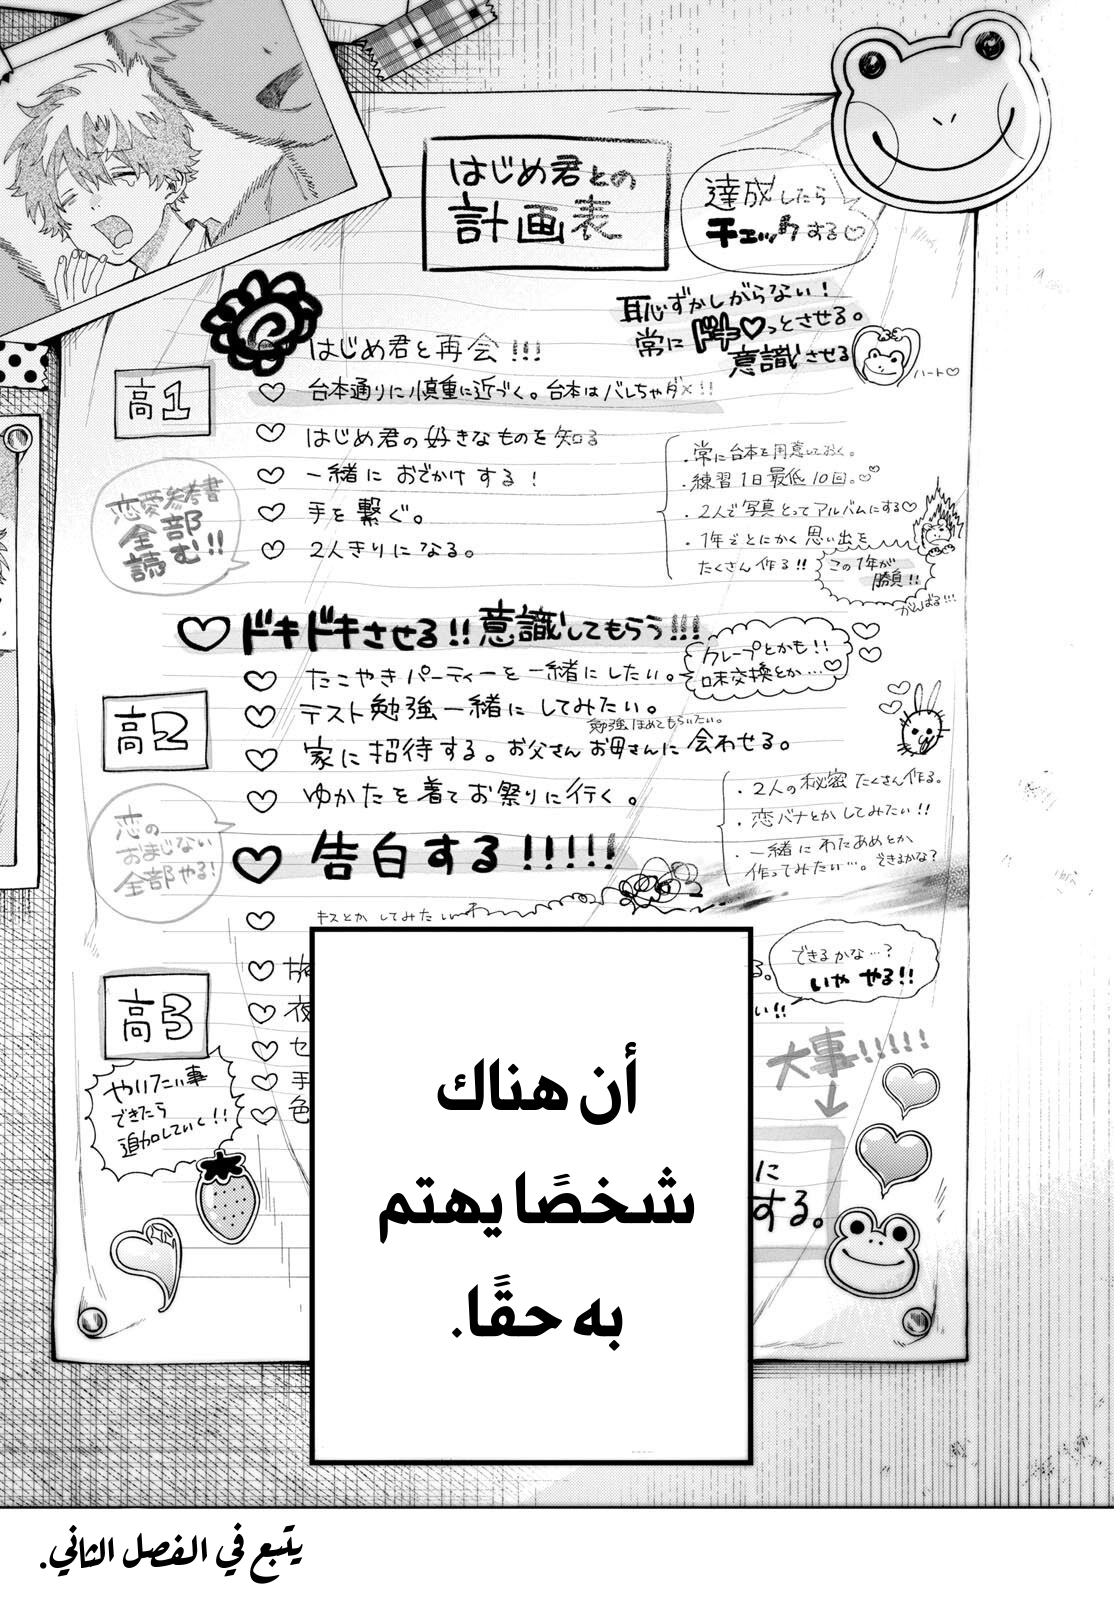 はじめ君との
計画表
達成したら
チェックする♡
恥ずかしがらない!
常にドキ♡っとさせる。
意識させる
ハート♡
はじめ君と再会!!!
高1
♡ 台本通りに慎重に近づく。台本はバレちゃダメ!!
♡ はじめ君の好きなものを知る
♡ 一緒におでかけする!
♡ 手を繋ぐ。
♡ 2人きりになる。
恋愛参考書
全部
読む!!
・常に台本を用意しておく。
・練習1日最低10回。♡
・2人で写真とってアルバムにする♡
・1年ごとにかく思い出を
たくさん作る!!
この1年が
勝負!!
がんばる!!!
♡ドキドキさせる!!意識してもらう!!!
♡ たこやきパーティーを一緒にしたい。
クレープとかも!!
味交換とか…♡
高2
♡ テスト勉強一緒にしてみたい。
勉強ほめてもらいたい。
♡ 家に招待する。お父さんお母さんに会わせる。
♡ ゆかたを着てお祭りに行く。
♡ 告白する!!!!!
恋の
おまじない
全部やる!
・2人の秘密たくさん作る。
・恋バナとかしてみたい!!
・一緒にわたあめとか
作ってみたい…。できるかな?
♡ キスとかしてみたい
できるかな…?
いややる!!
高3
♡ 旅
る。
♡ 夜
い!!
♡ セ
♡ 手
♡ 色
やりたい事
できたら
追加していく!!
大事!!!!!
に
する。
أن هناك
شخصًا يهتم
به حقًا.
يتبع في الفصل الثاني.